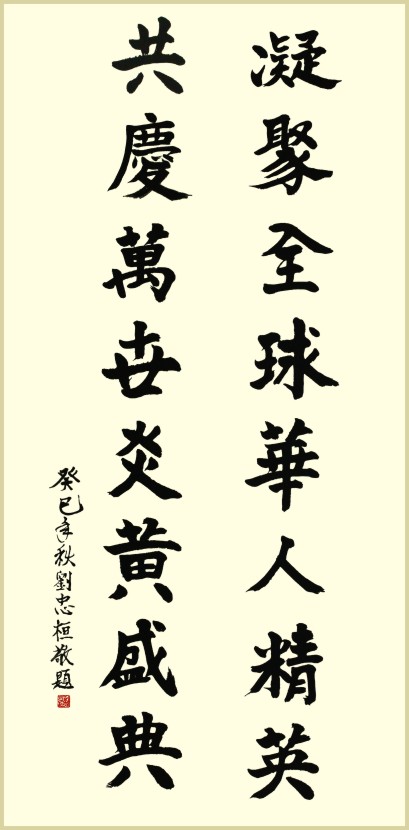 凝聚全球華人精英
共慶萬世炎黄盛典
癸巳年秋劉忠桓敬題